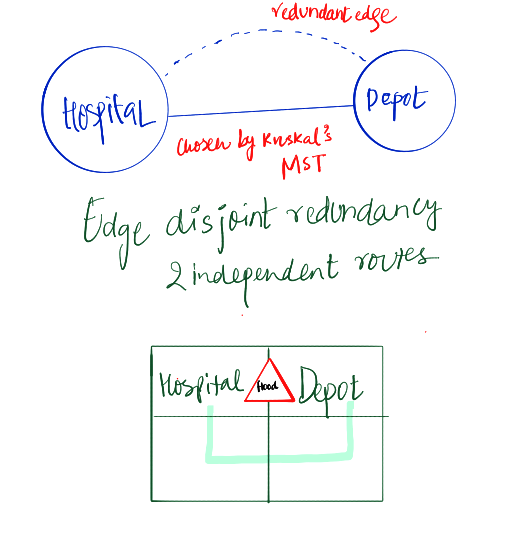 redundant edge
Hospital
Depot
Chosen by Kruskal's
MST
Edge disjoint redundancy
2 independent routes
Hospital
Depot